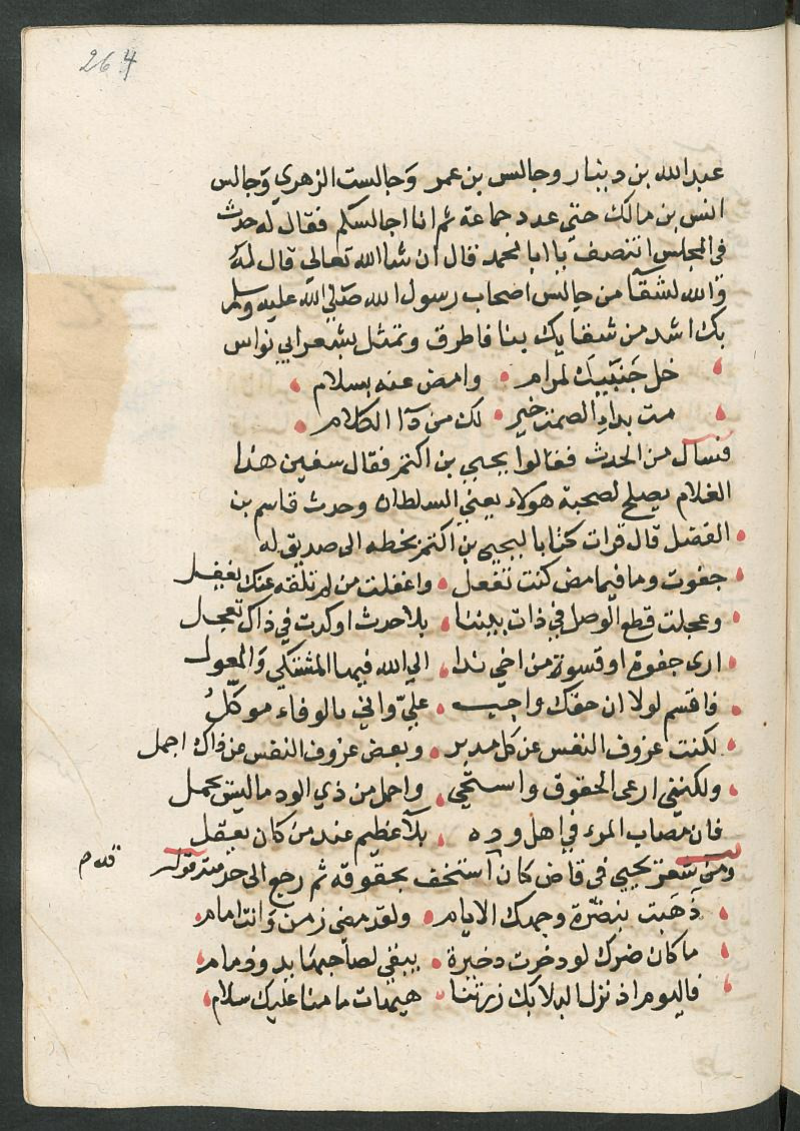 264
عبدالله بن دينار وجالس بن عمر وجالست الزهري وجالس
انس بن مالك حتي عدد جماعة ثم انا اجالسكم فقال له حدث
في المجلس اتنصف يا ابا محمد قال ان شاالله تعالي قال له
والله لشقا من جالس اصحاب رسول الله صلي الله عليه وسلم
بك اشد من شقايك بنا فاطرق وتمثل بشعر ابي نواس
خل جنبيك لرام وامض عنه بسلام
مت بداء الصمت خير لك من دآ الكلام
فسال من الحدث فقالوا يحيي بن اكثم فقال سفين هذا
الغلام يصلح لصحبة هولاء يعني السلطان وحدث قاسم بن
الفضل قال قرات كتابا ليحيي بن اكثم بخطه الى صديق له
جفوت وما فيما مضى كنت تفعل واغفلت من لم تلفه عنك يغفل
وعجلت قطع الوصل في ذات بيننا بلا حدث او كدت في ذاك تعجل
ارى جفوة او قسوة من اخي ندا الي الله فيها المشتكي والمعول
فاقسم لولا ان حقك واجب عليّ واني بالوفاء موكلُ
لكنت عزوف النفس عن كل مدبر وبعض عزوف النفس عن ذاك اجمل
ولكنني ارعى الحقوق واستحي واحمل من ذي الود ما ليس يحمل
فان مصاب المرء في اهل وده بلآ عظيم عند من كان يعقل
ومن شعر يحيي في قاض كان استخف بحقوقه ثم رجع الى خدمته قوله
قدم
ذَهَبت بنضرة وجهك الايام ولقد مضى زمن وانت امام
ما كان ضرك لو دخرت دخيرة يبقي لصاحبها يد وذمام
فاليوم اذ نزل البلا بك زرتنا هيهات ما منا عليك سلام